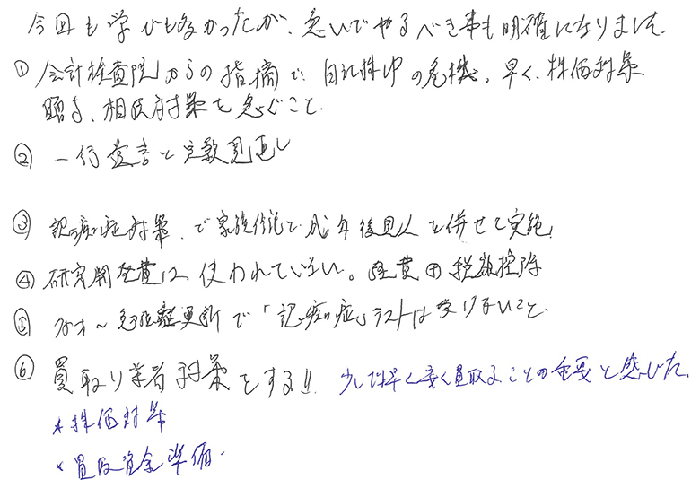 今回も学びも多かったが、急いでやるべき事も明確になりました。
① 会計検査院からの指摘で、自社株中の危機。早く、株価対策
贈与、相続対策を急ぐこと。
② 一行宣言と定款見直し
③ 認知症対策で家族信託で成年後見人を併せて実施
④ 研究開発費は使われていない。経費 税額控除
⑤ 免許証更新で「認知症」テストは受けないこと
⑥ 買取り業者対策をする!! 少しでも早く安く買取ることの重要と感じた。
*株価対策
*買取資金準備